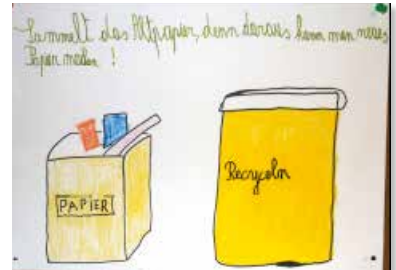 Sammelt das Altpapier, denn daraus kann man neues
Papier machen !
PAPIER
Recyceln